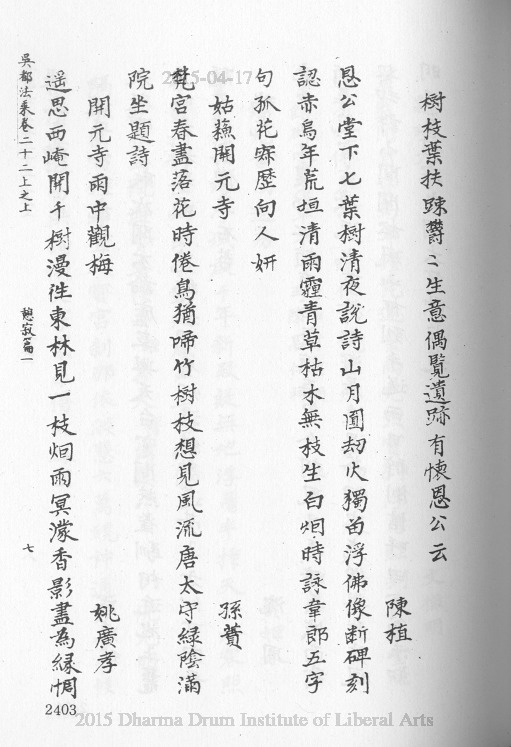 樹枝葉扶踈欝〻生意偶覧遺跡有懷恩公云
陳植
恩公堂下七葉樹清夜說詩山月圓刼火獨留浮佛像斷碑刻
認赤烏年荒垣清雨霾青草枯木無枝生白烟時詠韋郎五字
句孤花寂歷向人妍
姑蘓開元寺
孫蕡
梵宮春盡落花時倦鳥猶啼竹樹枝想見風流唐太守緑陰滿
院坐題詩
開元寺雨中觀梅
姚廣孝
遥思西崦開千樹漫徃東林見一枝烟雨冥濛香影盡為緑惆
吳都法乘卷二十二上之上
憩寂篇一
七
2403
2015-04-17
2015 Dharma Drum Institute of Liberal Arts